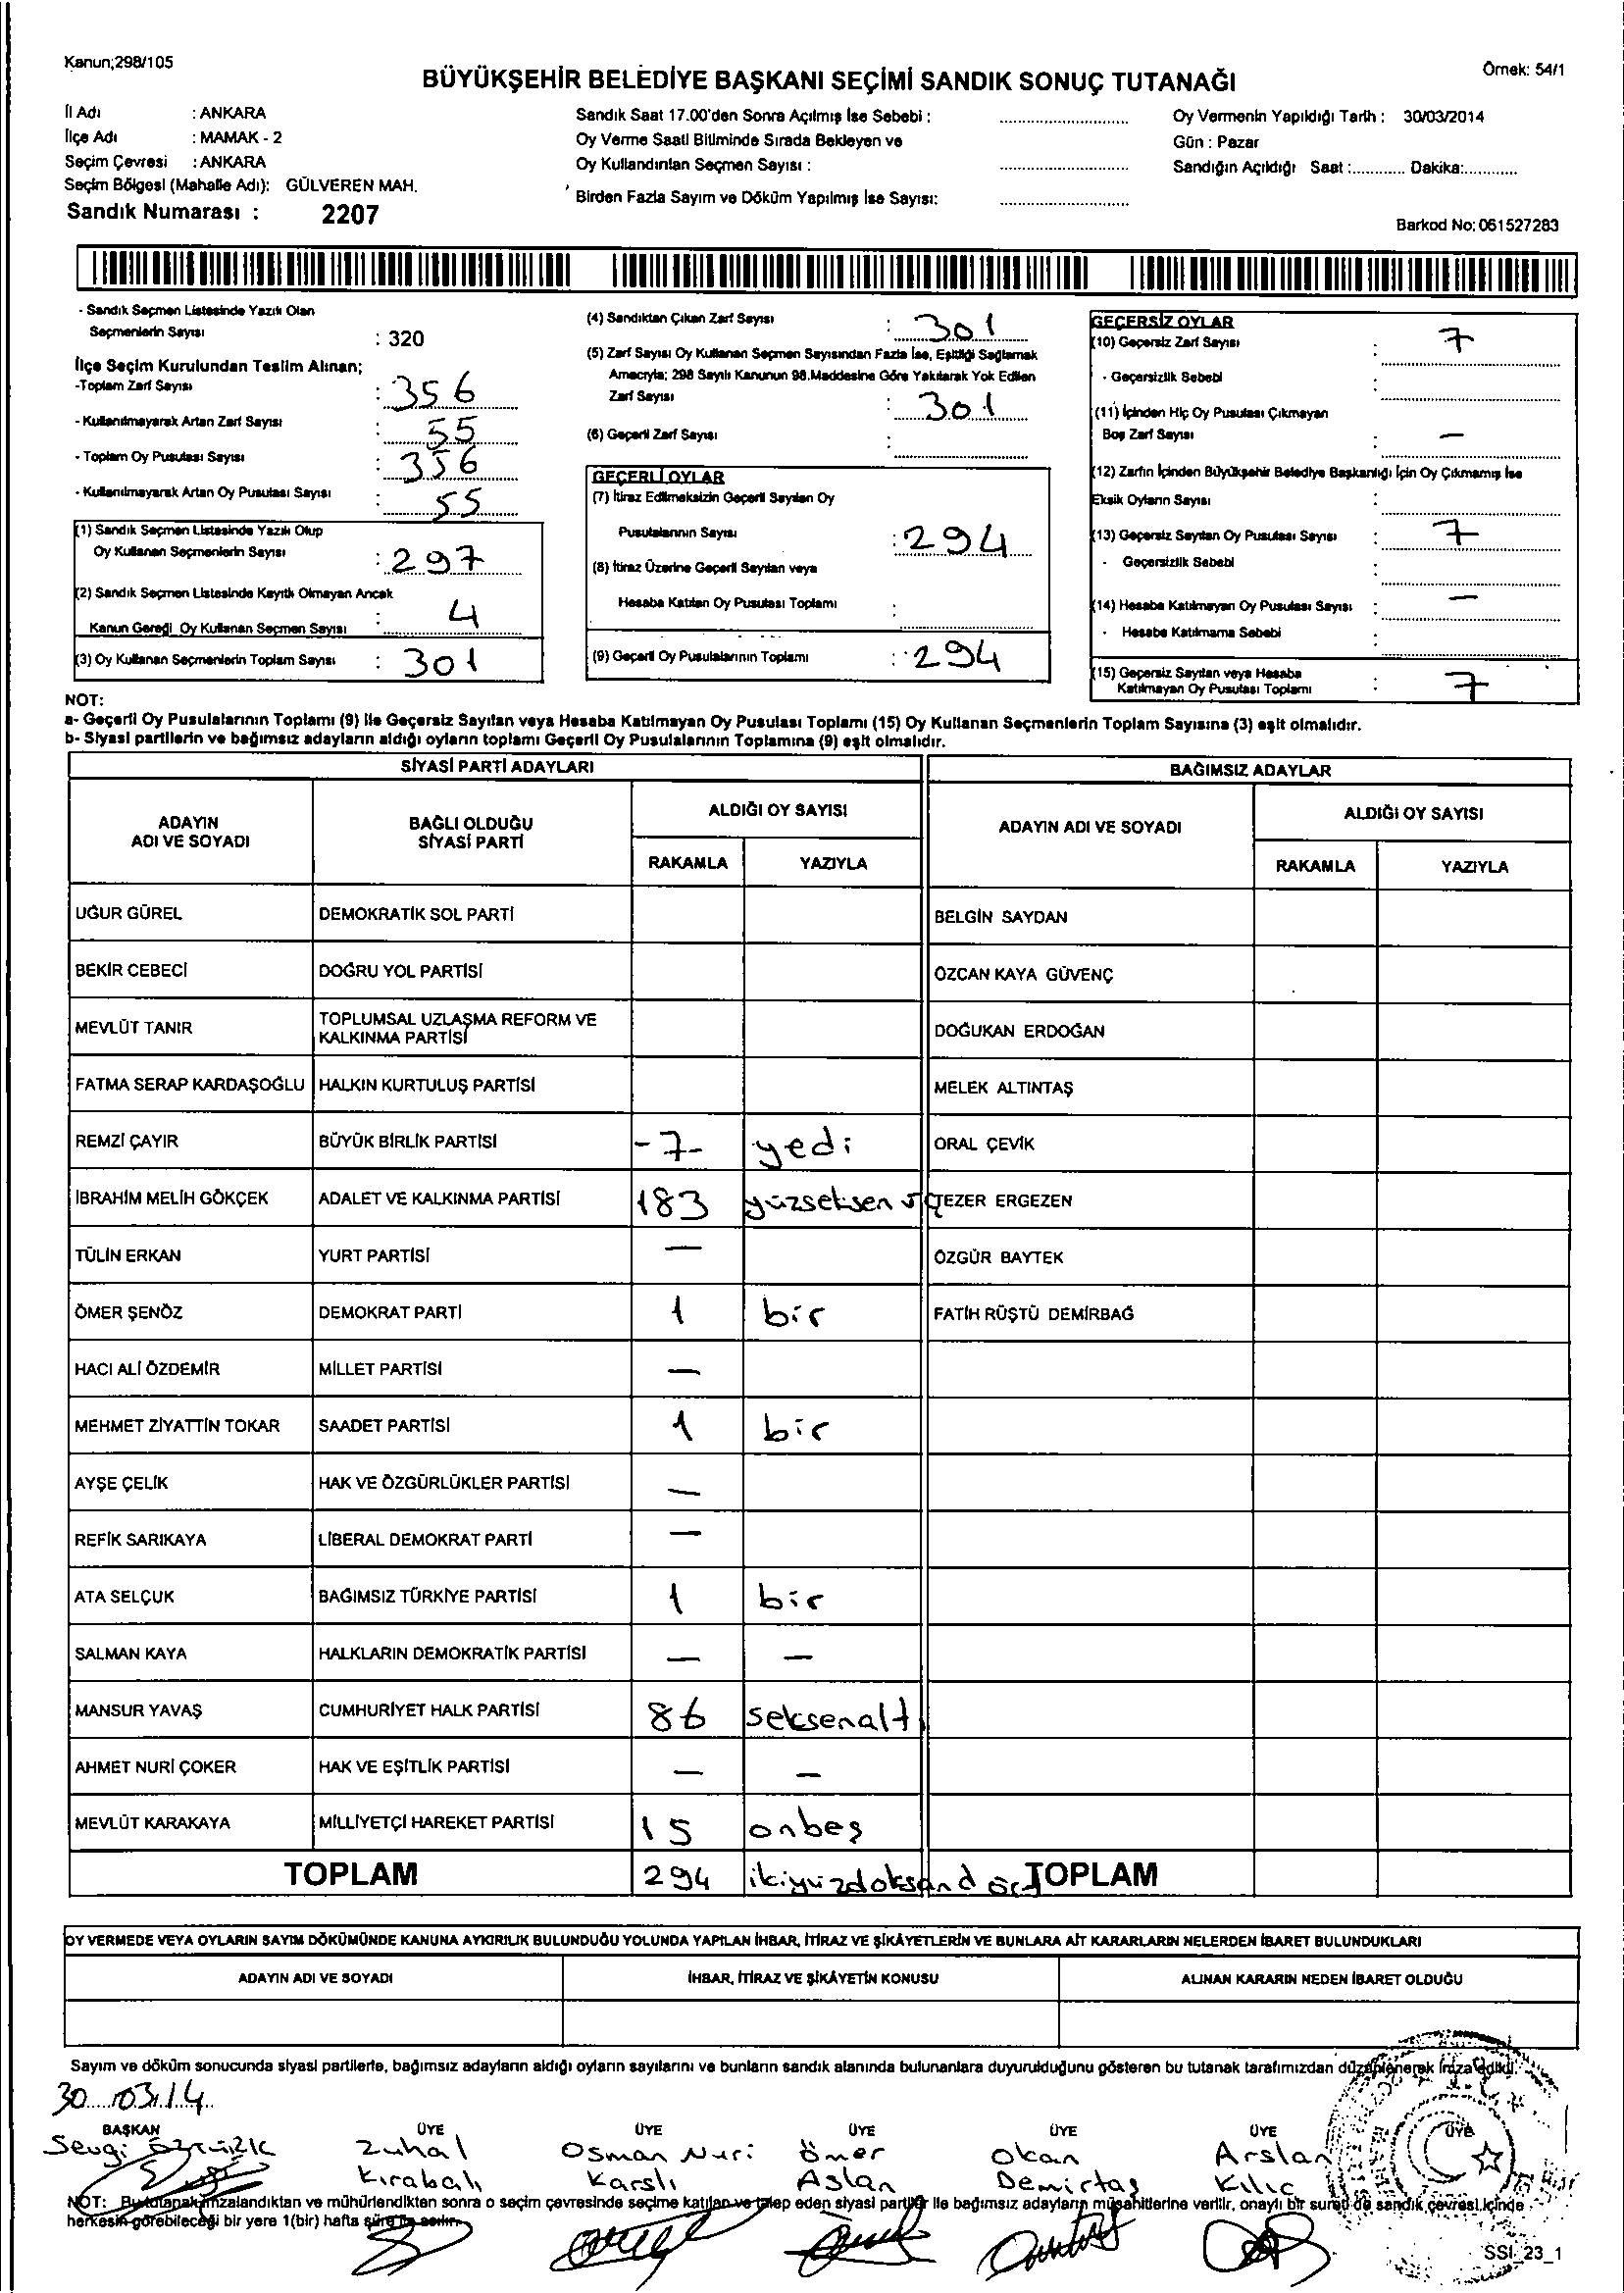 Kanun;298/105
Örnek: 54/1
BÜYÜKŞEHİR BELEDİYE BAŞKANI SEÇİMİ SANDIK SONUÇ TUTANAĞI
İl Adı : ANKARA
İlçe Adı : MAMAK - 2
Seçim Çevresi : ANKARA
Seçim Bölgesi (Mahalle Adı): GÜLVEREN MAH.
Sandık Numarası : 2207
Sandık Saat 17.00'den Sonra Açılmış İse Sebebi :
Oy Verme Saati Bitiminde Sırada Bekleyen ve
Oy Kullandırılan Seçmen Sayısı :
Birden Fazla Sayım ve Döküm Yapılmış İse Sayısı:
Oy Vermenin Yapıldığı Tarih : 30/03/2014
Gün : Pazar
Sandığın Açıldığı Saat :............ Dakika:.............
Barkod No: 061527283
- Sandık Seçmen Listesinde Yazılı Olan
Seçmenlerin Sayısı : 320
İlçe Seçim Kurulundan Teslim Alınan;
-Toplam Zarf Sayısı : 356
- Kullanılmayarak Artan Zarf Sayısı : 55
- Toplam Oy Pusulası Sayısı : 356
- Kullanılmayarak Artan Oy Pusulası Sayısı : 55
(1) Sandık Seçmen Listesinde Yazılı Olup
Oy Kullanan Seçmenlerin Sayısı : 297
(2) Sandık Seçmen Listesinde Kayıtlı Olmayan Ancak
Kanun Gereği Oy Kullanan Seçmen Sayısı : 4
(3) Oy Kullanan Seçmenlerin Toplam Sayısı : 301
(4) Sandıktan Çıkan Zarf Sayısı : 301
(5) Zarf Sayısı Oy Kullanan Seçmen Sayısından Fazla İse, Eşitliği Sağlamak
Amacıyla; 298 Sayılı Kanunun 98.Maddesine Göre Yakılarak Yok Edilen
Zarf Sayısı : 301
(6) Geçerli Zarf Sayısı :
GEÇERLİ OYLAR
(7) İtiraz Edilmeksizin Geçerli Sayılan Oy
Pusulalarının Sayısı : 294
(8) İtiraz Üzerine Geçerli Sayılan veya
Hesaba Katılan Oy Pusulası Toplamı :
(9) Geçerli Oy Pusulalarının Toplamı : 294
GEÇERSİZ OYLAR
(10) Geçersiz Zarf Sayısı : 7
- Geçersizlik Sebebi :
(11) İçinden Hiç Oy Pusulası Çıkmayan
Boş Zarf Sayısı : —
(12) Zarfın İçinden Büyükşehir Belediye Başkanlığı İçin Oy Çıkmamış İse
Eksik Oyların Sayısı :
(13) Geçersiz Sayılan Oy Pusulası Sayısı : 7
- Geçersizlik Sebebi :
(14) Hesaba Katılmayan Oy Pusulası Sayısı : —
- Hesaba Katılmama Sebebi :
(15) Geçersiz Sayılan veya Hesaba
Katılmayan Oy Pusulası Toplamı : 7
NOT:
a- Geçerli Oy Pusulalarının Toplamı (9) ile Geçersiz Sayılan veya Hesaba Katılmayan Oy Pusulası Toplamı (15) Oy Kullanan Seçmenlerin Toplam Sayısına (3) eşit olmalıdır.
b- Siyasi partilerin ve bağımsız adayların aldığı oyların toplamı Geçerli Oy Pusulalarının Toplamına (9) eşit olmalıdır.
SİYASİ PARTİ ADAYLARI BAĞIMSIZ ADAYLAR
ADAYIN ADI VE SOYADI BAĞLI OLDUĞU SİYASİ PARTİ ALDIĞI OY SAYISI ADAYIN ADI VE SOYADI ALDIĞI OY SAYISI
RAKAMLA YAZIYLA RAKAMLA YAZIYLA
UĞUR GÜREL DEMOKRATİK SOL PARTİ BELGİN SAYDAN
BEKİR CEBECİ DOĞRU YOL PARTİSİ ÖZCAN KAYA GÜVENÇ
MEVLÜT TANIR TOPLUMSAL UZLAŞMA REFORM VE KALKINMA PARTİSİ DOĞUKAN ERDOĞAN
FATMA SERAP KARDAŞOĞLU HALKIN KURTULUŞ PARTİSİ MELEK ALTINTAŞ
REMZİ ÇAYIR BÜYÜK BİRLİK PARTİSİ -7- yedi ORAL ÇEVİK
İBRAHİM MELİH GÖKÇEK ADALET VE KALKINMA PARTİSİ 183 yüzseksen üç TEZER ERGEZEN
TÜLİN ERKAN YURT PARTİSİ — ÖZGÜR BAYTEK
ÖMER ŞENÖZ DEMOKRAT PARTİ 1 bir FATİH RÜŞTÜ DEMİRBAĞ
HACI ALİ ÖZDEMİR MİLLET PARTİSİ —
MEHMET ZİYATTİN TOKAR SAADET PARTİSİ 1 bir
AYŞE ÇELİK HAK VE ÖZGÜRLÜKLER PARTİSİ —
REFİK SARIKAYA LİBERAL DEMOKRAT PARTİ —
ATA SELÇUK BAĞIMSIZ TÜRKİYE PARTİSİ 1 bir
SALMAN KAYA HALKLARIN DEMOKRATİK PARTİSİ — —
MANSUR YAVAŞ CUMHURİYET HALK PARTİSİ 86 seksenaltı
AHMET NURİ ÇOKER HAK VE EŞİTLİK PARTİSİ — —
MEVLÜT KARAKAYA MİLLİYETÇİ HAREKET PARTİSİ 15 onbeş
TOPLAM 294 ikiyüzdoksandört TOPLAM
OY VERMEDE VEYA OYLARIN SAYIM DÖKÜMÜNDE KANUNA AYKIRILIK BULUNDUĞU YOLUNDA YAPILAN İHBAR, İTİRAZ VE ŞİKÂYETLERİN VE BUNLARA AİT KARARLARIN NELERDEN İBARET BULUNDUKLARI
ADAYIN ADI VE SOYADI İHBAR, İTİRAZ VE ŞİKÂYETİN KONUSU ALINAN KARARIN NEDEN İBARET OLDUĞU
Sayım ve döküm sonucunda siyasi partilerle, bağımsız adayların aldığı oyların sayılarını ve bunların sandık alanında bulunanlara duyurulduğunu gösteren bu tutanak tarafımızdan düzenlenerek imza edildi.
30.03.14
BAŞKAN ÜYE ÜYE ÜYE ÜYE ÜYE ÜYE
Sevgi Öztürk Zuhal Osman Nuri Ömer Okan Arslan
Kırabalı Karslı Aslan Demirtaş Kılıç
NOT: Bu tutanak imzalandıktan ve mühürlendikten sonra o seçim çevresinde seçime katılan ve talep eden siyasi partiler ile bağımsız adayların müşahitlerine verilir, onaylı bir sureti de sandık çevresi içinde
herkesin görebileceği bir yere 1(bir) hafta süre ile asılır.
SSI_23_1